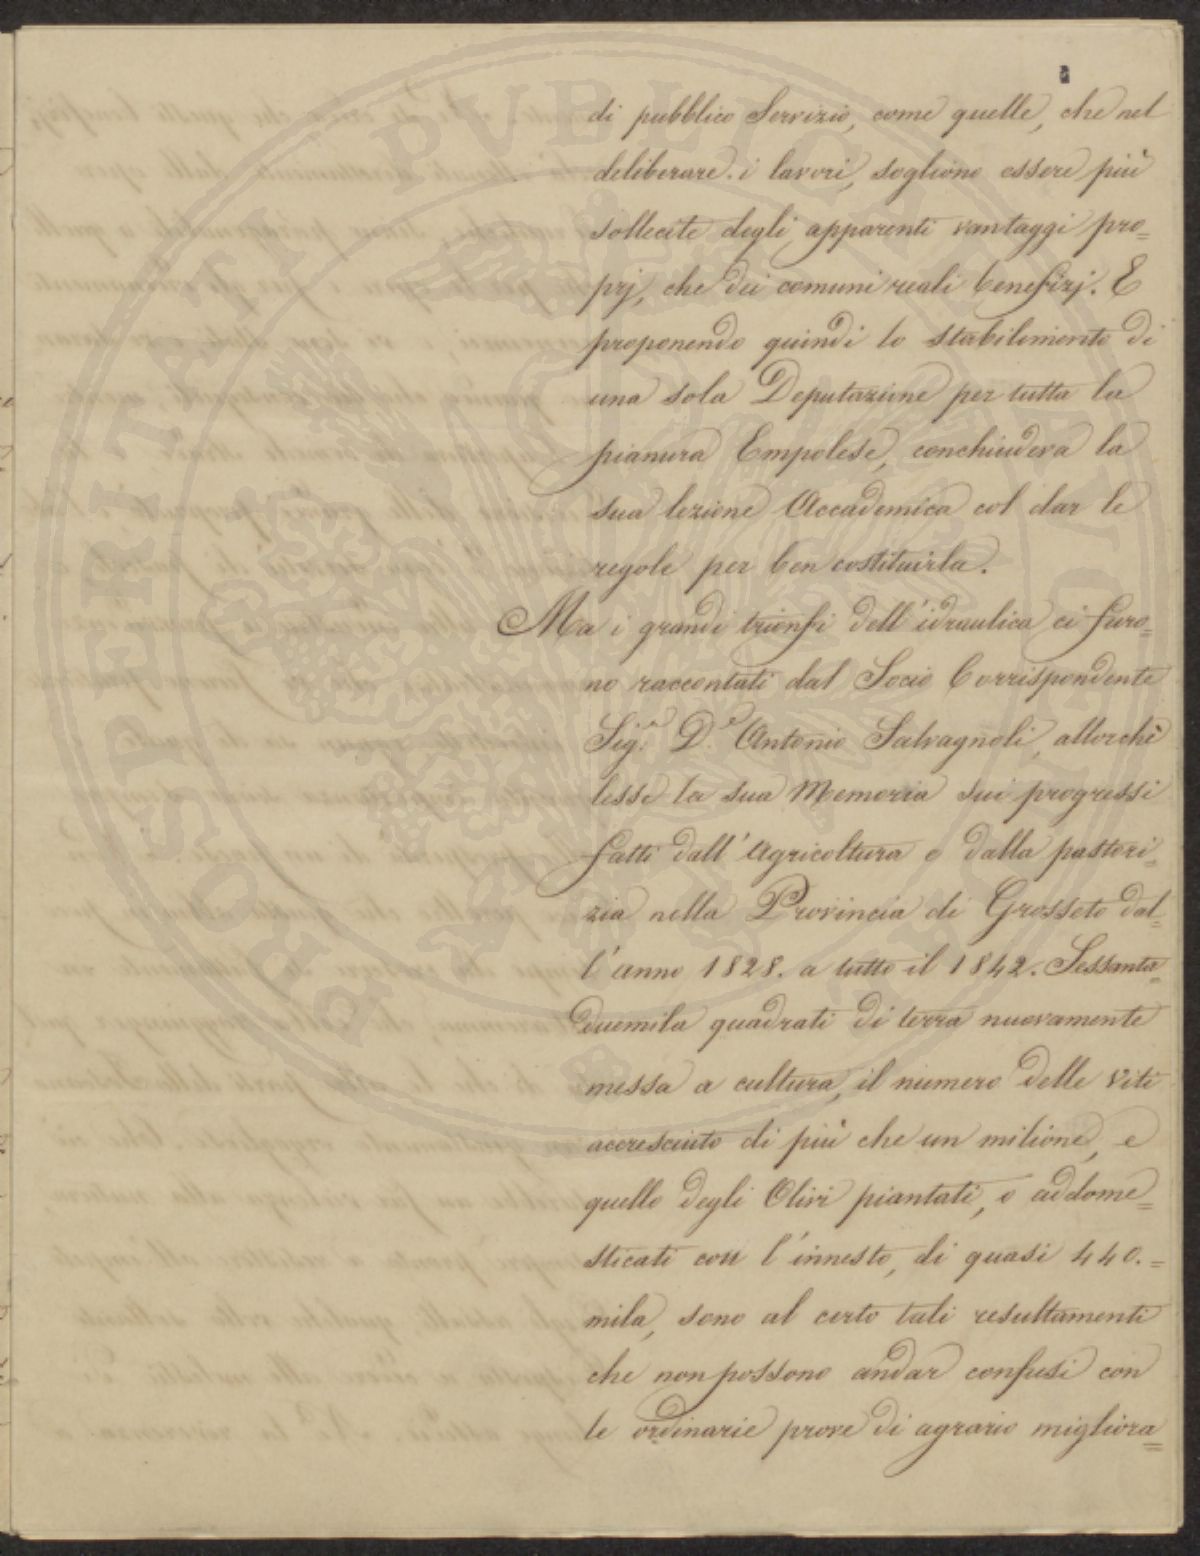 di pubblico Servizio, come quelle, che nel
deliberare i lavori, sogliono essere più
sollecite degli apparenti vantaggi pro=
prj, che dei comuni reali benefizj. E
proponendo quindi lo stabilimento di
una sola Deputazione per tutta la
pianura Empolese, conchiudeva la
sua lezione Accademica col dar le
regole per ben costituirla.
Ma i grandi trionfi dell'idraulica ci furo=
no raccontati dal Socio Corrispondente
Sig.r D.r Antonio Salvagnoli, allorchè
lesse la sua Memoria sui progressi
fatti dall'Agricoltura e dalla pastori=
zia nella Provincia di Grosseto dal=
l'anno 1828. a tutto il 1842. Sessanta=
duemila quadrati di terra nuovamente
messa a cultura, il numero delle viti
accresciuto di più che un milione, e
quello degli Olivi piantati, o addome=
sticati con l'innesto, di quasi 440.=
mila, sono al certo tali resultamenti
che non possono andar confusi con
le ordinarie prove di agrario migliora=
PROSPERITATI PUBLICAE AUGENDAE